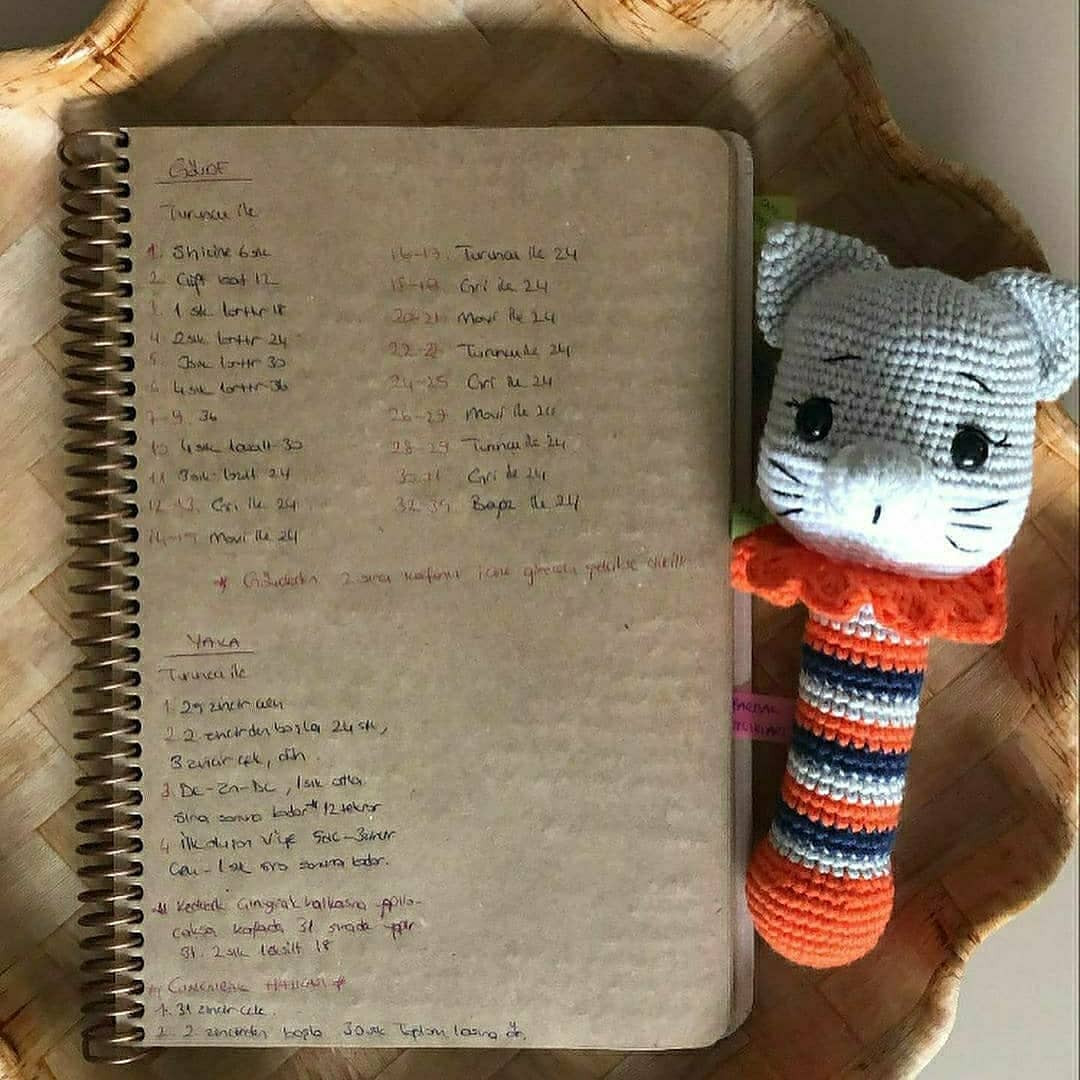 GÖVDE
Turuncu ile
1. Sihirine 6 sık
2. Çift bat 12
3. 1 sık 1 arttır 18
4. 2 sık 1 arttır 24
5. 3 sık 1 arttır 30
6. 4 sık 1 arttır 36
7-9. 36
10. 4 sık 1 azalt 30
11. 3 sık 1 azalt 24
12-13. Gri ile 24
14-15 Mavi ile 24
16-17. Turuncu ile 24
18-19 Gri ile 24
20-21 Mavi ile 24
22-23 Turuncu ile 24
24-25 Gri ile 24
26-27 Mavi ile 24
28-29 Turuncu ile 24
30-31 Gri ile 24
32-35 Beyaz ile 24
* 2 sıra içine girecek şekilde
YAKA
Turuncu ile
1. 29 zincir çek
2. 2. zincirden başla 24 sık,
3 zincir çek, dön.
3. Dc-Zn-Dc, 1 sık atla
sıra sonuna kadar* 12 tekrar
4. İlk V'ye 5dc-3zincir
1 sık sıra sonuna kadar.
* çıngırak halkasına
kafada 31 sırada
31. 2 sık 1 eksilt 18
* ÇINGIRAK *
1. 31 zincir çek.
2. 2. zincirden başla 30 sık